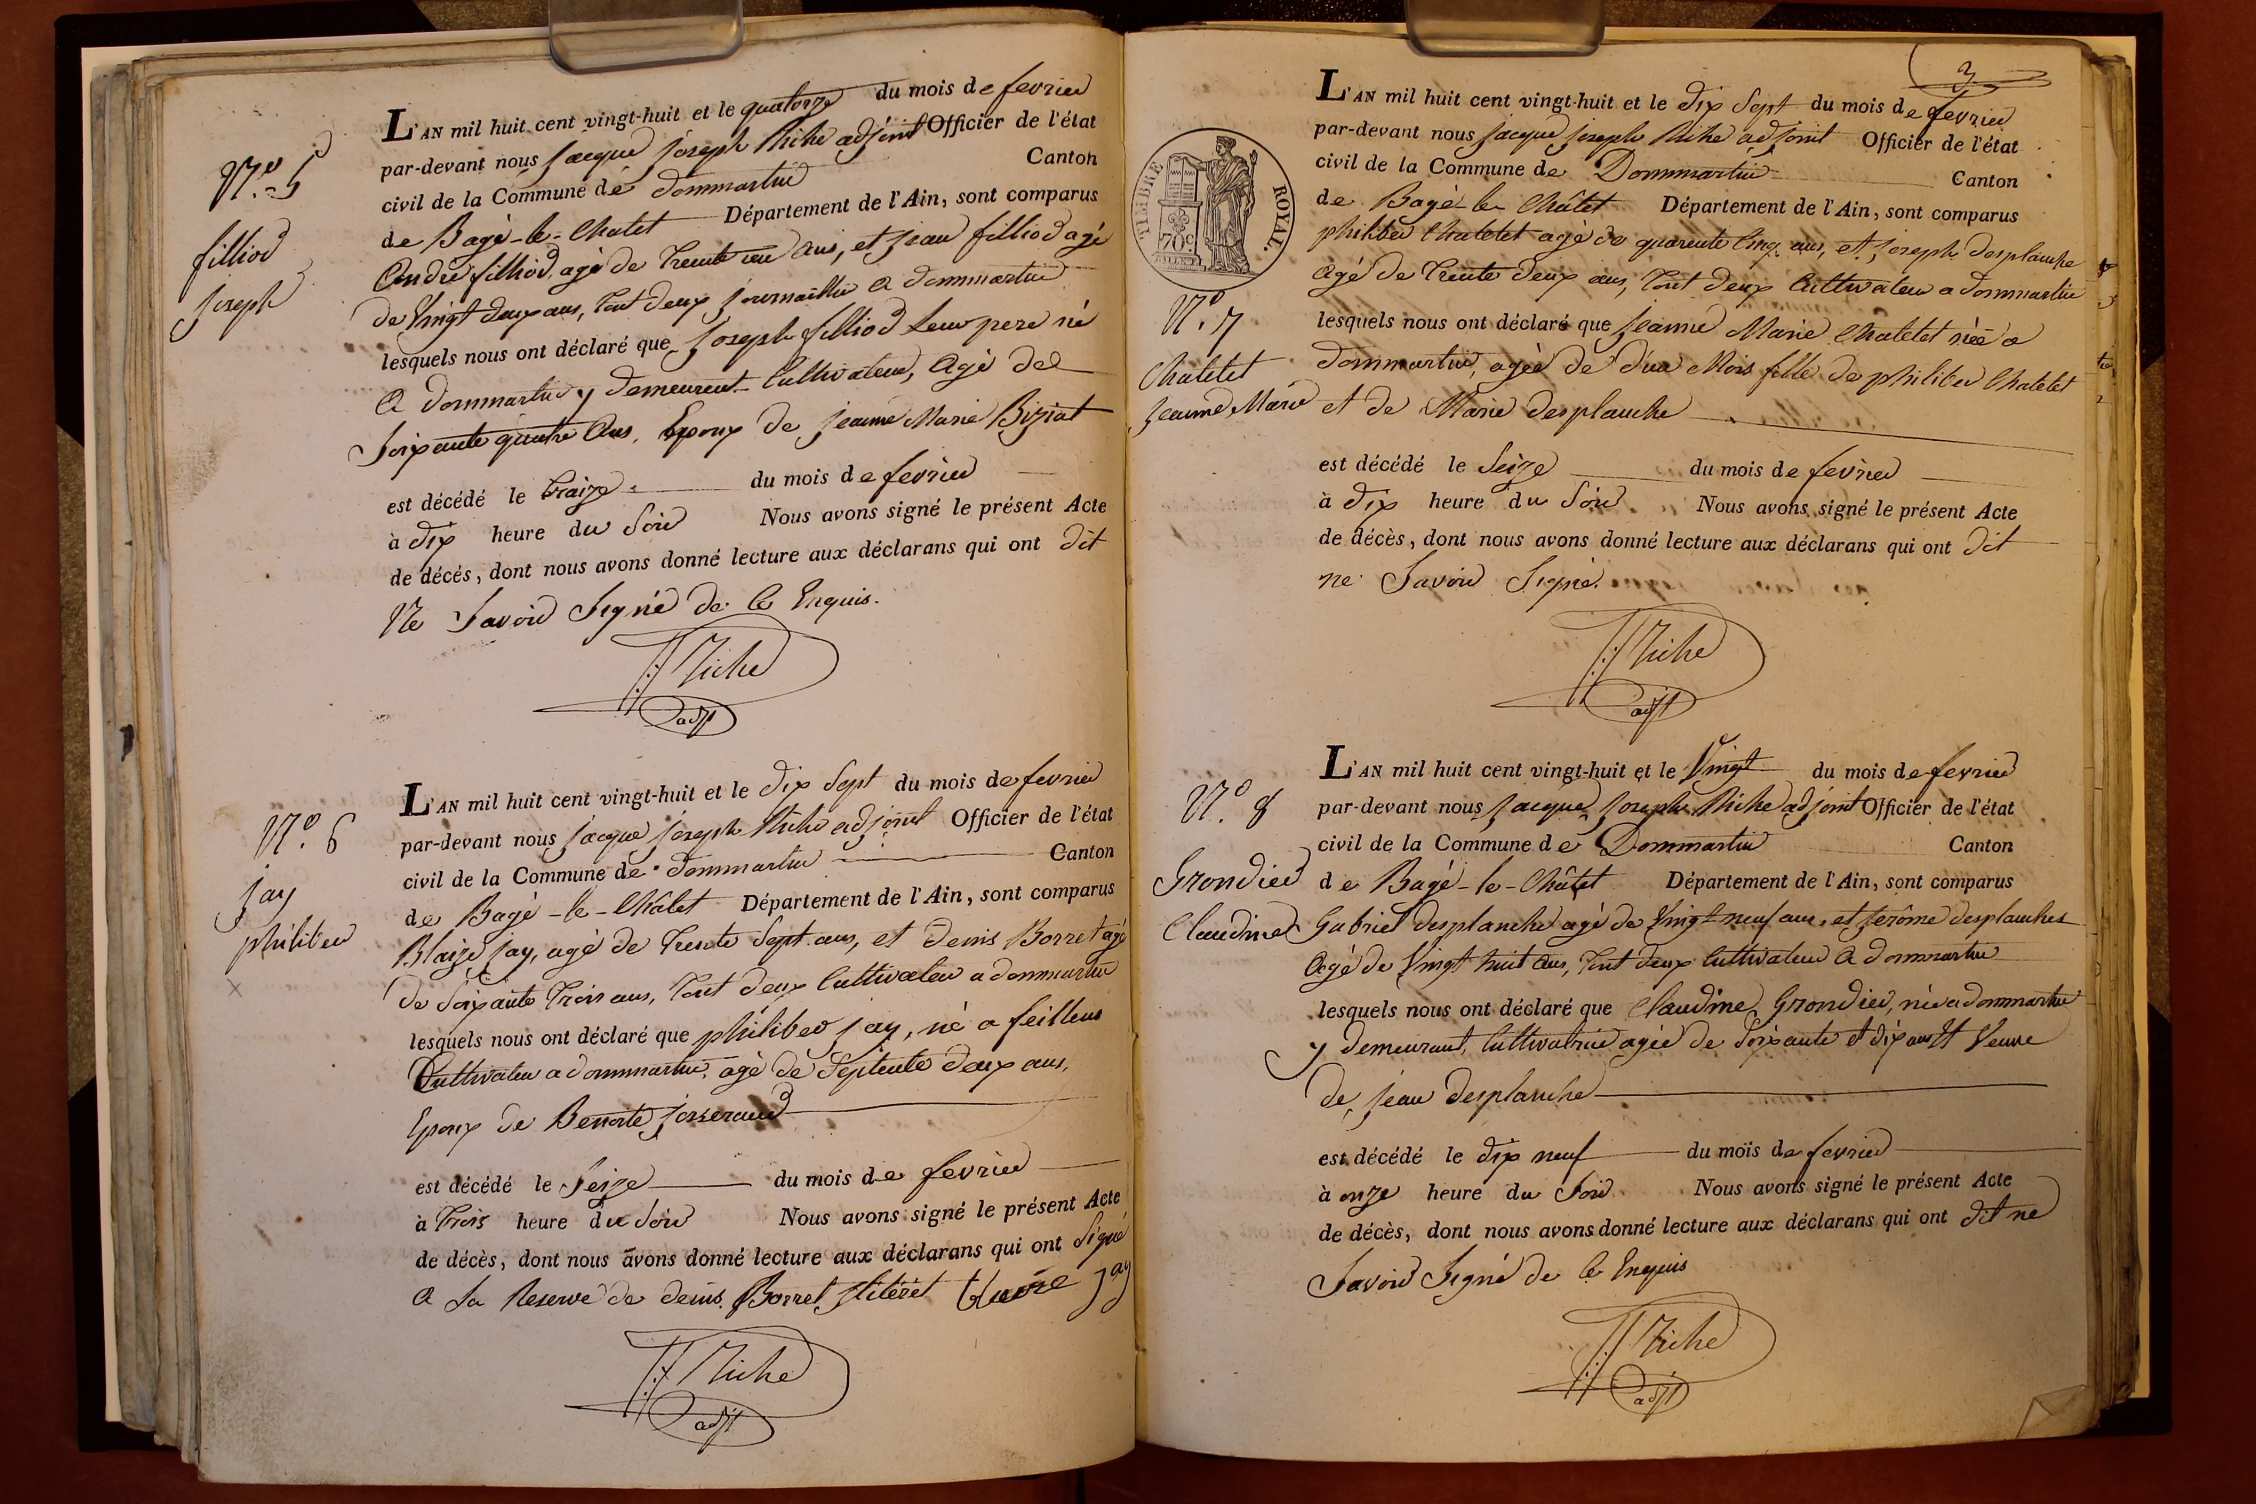 N.º 5
filliod
joseph
L'AN mil huit cent vingt-huit et le quatorze du mois de fevrier
par-devant nous jacque joseph Riche adjoint Officier de l'état
civil de la Commune de dommartin Canton
de Bagé-le-Chatet Département de l'Ain, sont comparus
André filliod agé de trente un ans, et jean filliod agé
de Vingt deux ans, tout deux journaillie a dommartin
lesquels nous ont déclaré que joseph filliod leur pere né
a dommartin y demeurent Cultivateur, Agé de
soixante quatre Ans, Epoux de jeanne Marie Biziat
est décédé le traize du mois de fevrier
à dix heure du Soir Nous avons signé le présent Acte
de décès, dont nous avons donné lecture aux déclarans qui ont dit
Ne Savoir Signé de Ce Enquis.
JJ Riche
adjt
N.º 6
jay
philiber
L'AN mil huit cent vingt-huit et le dix Sept du mois de fevrier
par-devant nous jacque joseph Riche adjoint Officier de l'état
civil de la Commune de dommartin Canton
de Bagé-le-Châtet Département de l'Ain, sont comparus
Blaize jay, agé de trente Sept ans, et denis Borret agé
de Soixante trois ans, tout deux Cultivateur a dommartin
lesquels nous ont déclaré que philiber jay, né a feillens
Cultivateur a dommartin, agé de Septente deux ans,
Epoux de Benoite josserand
est décédé le Seize du mois de fevrier
à trois heure du Soir Nous avons signé le présent Acte
de décès, dont nous avons donné lecture aux déclarans qui ont Signé
a la Reserve de denis Borret jay
JJ Riche
adjt
3
TIMBRE ROYAL
70c
N.º 7
Chatelet
jeanne Marie
L'AN mil huit cent vingt-huit et le dix Sept du mois de fevrier
par-devant nous jacque joseph Riche adjoint Officier de l'état
civil de la Commune de Dommartin Canton
de Bagé-le-Châtet Département de l'Ain, sont comparus
philiber Chatelet agé de quarente Cinq ans, et joseph desplanche
agé de trente deux ans, tout deux Cultivateur a dommartin
lesquels nous ont déclaré que jeanne Marie Chatelet née a
dommartin, agée de deux Mois fille de philiber Chatelet
et de Marie desplanche
est décédé le Seize du mois de fevrier
à dix heure du Soir Nous avons signé le présent Acte
de décès, dont nous avons donné lecture aux déclarans qui ont dit
ne Savoir Signé.
JJ Riche
adjt
N.º 8
Grondier
Claudine
L'AN mil huit cent vingt-huit et le Vingt du mois de fevrier
par-devant nous jacque joseph Riche adjoint Officier de l'état
civil de la Commune de Dommartin Canton
de Bagé-le-Châtet Département de l'Ain, sont comparus
Gabriel desplanche agé de Vingt neuf ans, et jerôme desplanches
Agé de Vingt huit Ans, tout deux Cultivateur a dommartin
lesquels nous ont déclaré que Claudine Grondier, née a dommartin
y demeurant, Cultivatrice agée de Soixante et dix ans et Veuve
de jean desplanche
est décédé le dix neuf du mois de fevrier
à onze heure du Soir Nous avons signé le présent Acte
de décès, dont nous avons donné lecture aux déclarans qui ont dit ne
Savoir Signé de Ce Enquis
JJ Riche
adjt